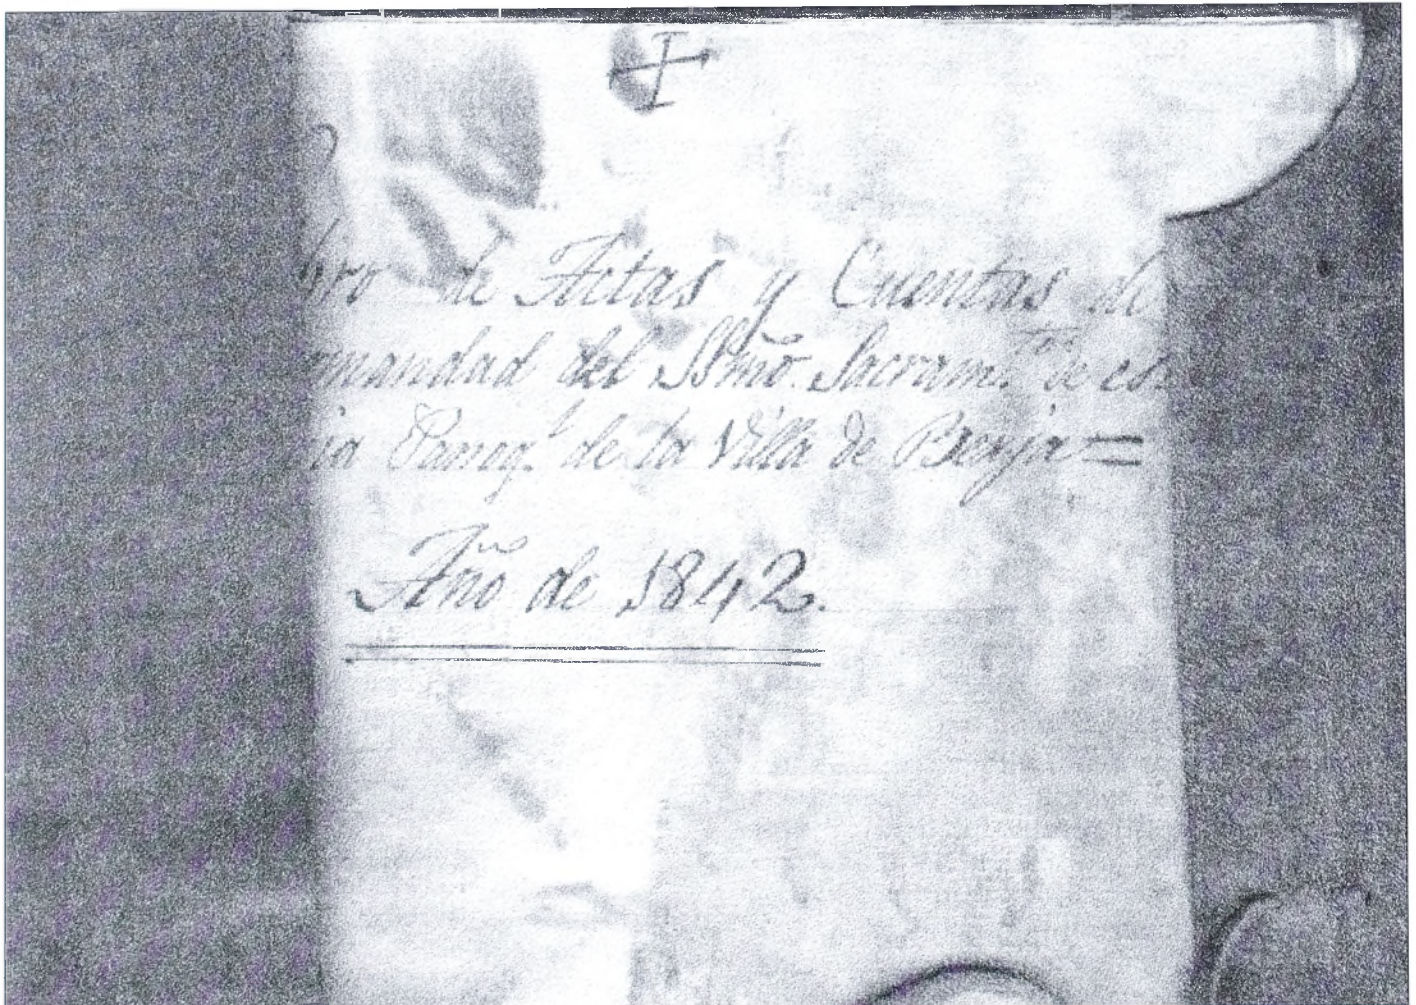 bro de Actas y Cuentas de
rmandad del SSmõ. Sacramto. de es
ia Parroql. de la Villa de Berja=
Año de 1842.